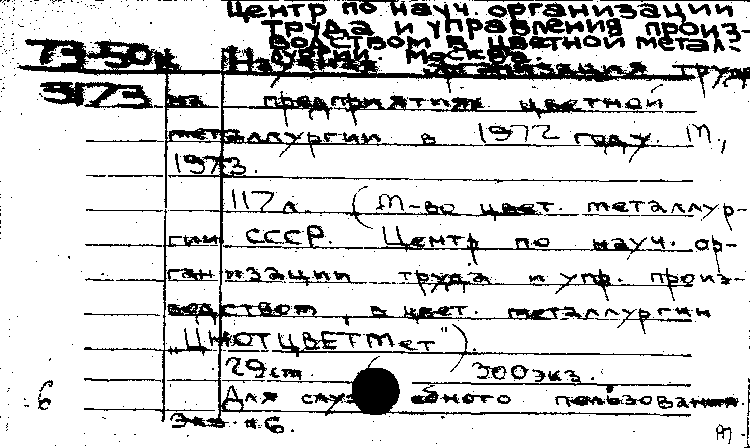 Центр по науч. организации
труда и управления произ-
водством в цветной метал-
лургии. Москва.
73-50
Научная организация труда
3173
на предприятиях цветной
металлургии в 1972 году. М.,
1973.
117 л. (М-во цвет. металлур-
гии СССР. Центр по науч. ор-
ганизации труда и упр. произ-
водством в цвет. металлургии
„ЦНОТЦВЕТМет").
29 см. 300 экз.
Для служебного пользования.
Экз. №6.
6